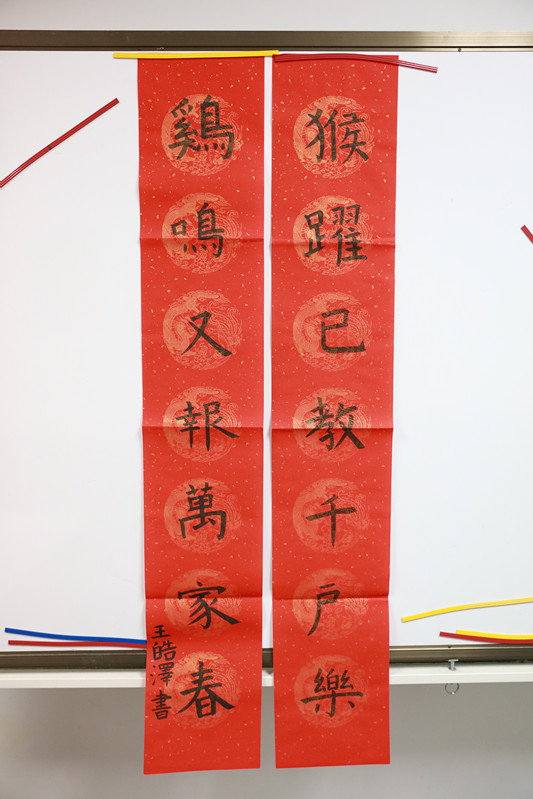 猴躍已教千戶樂
鷄鳴又報萬家春
王皓澤書